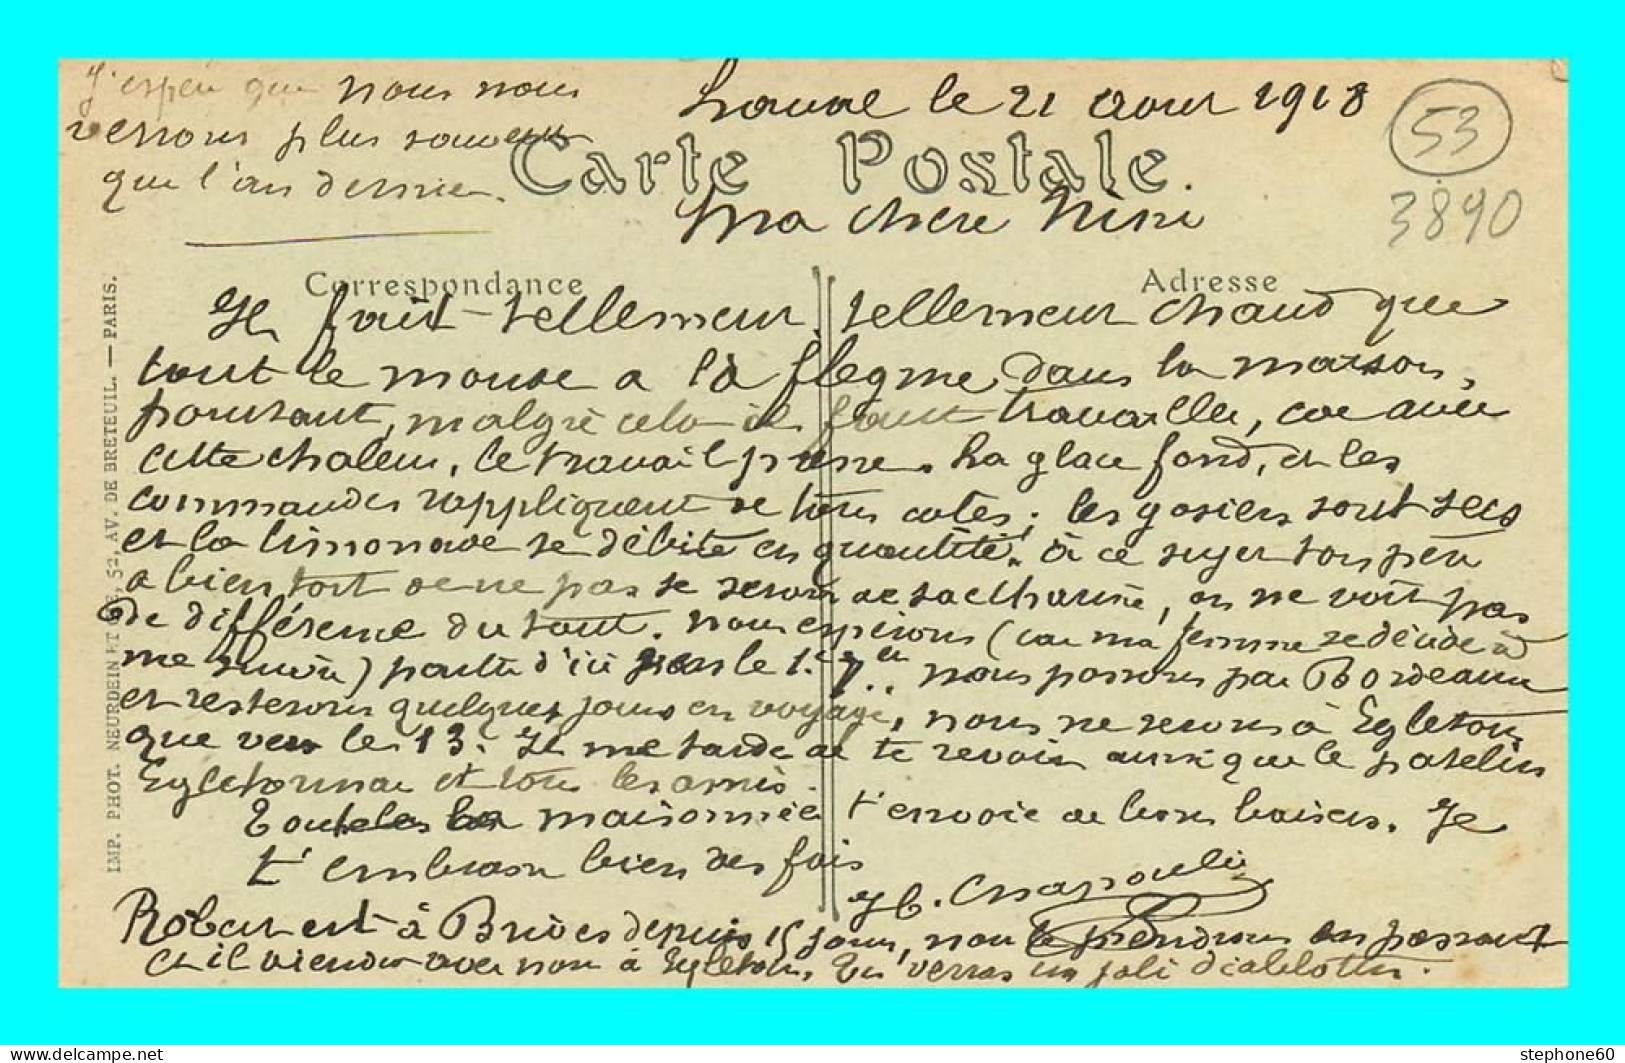 J'espère que nous nous
verrons plus souvent
que l'an dernier.
Laval le 21 Aout 1918
53
3890
Carte Postale.
Ma chere Nini
Correspondance
Adresse
Il fait tellement, tellement chaud que
tout le monde a la flegme dans la maison,
pourtant, malgré cela il faut travailler, car avec
cette chaleur, le travail presse. La glace fond, et les
commandes rappliquent de tous cotés; les gosiers sont secs
et la limonade se débite en quantité. à ce sujet ton père
a bien tort de ne pas se servir de saccharine, on ne voit pas
de différence du tout. nous espérons (car ma femme se décide à
me suivre) partir d'ici vers le 1. 7bre. nous passons par Bordeaux
et resterons quelques jours en voyage, nous ne serons à Egletons
que vers le 13. Il me tarde de te revoir ainsi que le patelin
Egletonnais et tous les amis.
Toute la maisonnée t'envoie de bons baisers. Je
t'embrasse bien des fois
Chapoulie
Robert est à Brives depuis 15 jours, nous le prendrons en passant
et il viendra avec nous à Egletons. Tu verras un joli diablotin.
IMP. PHOT. NEURDEIN ET CIE, 52, AV. DE BRETEUIL. — PARIS.
stephone60